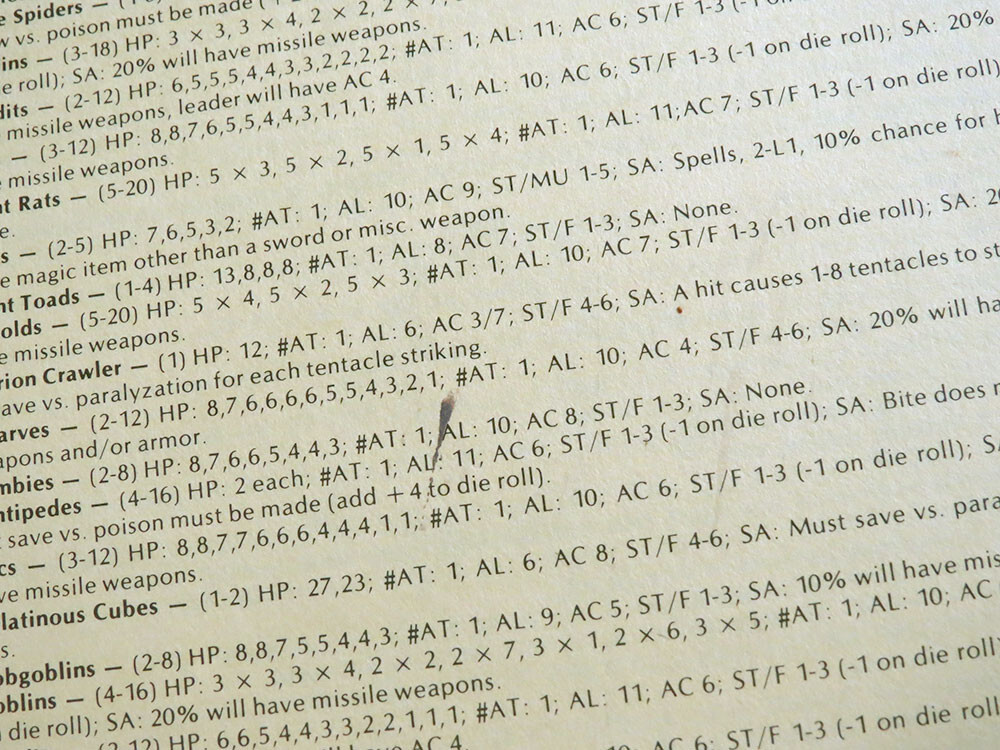 e Spiders — (1-
w vs. poison must be made (
ins — (3-18) HP: 3 × 3, 3 × 4, 2 × 2, 2 ×
e roll); SA: 20% will have missile weapons.
dits — (2-12) HP: 6,5,5,5,4,4,3,3,2,2,2,2; #AT: 1; AL: 11; AC 6; ST/F 1-3 (-
missile weapons, leader will have AC 4.
— (3-12) HP: 8,8,7,6,5,5,4,4,3,1,1,1; #AT: 1; AL: 10; AC 6; ST/F 1-3 (-1 on die roll); SA: 20%
e missile weapons.
nt Rats — (5-20) HP: 5 × 3, 5 × 2, 5 × 1, 5 × 4; #AT: 1; AL: 11;AC 7; ST/F 1-3 (-1 on die roll)
e.
s — (2-5) HP: 7,6,5,3,2; #AT: 1; AL: 10; AC 9; ST/MU 1-5; SA: Spells, 2-L1, 10% chance for
e magic item other than a sword or misc. weapon.
nt Toads — (1-4) HP: 13,8,8,8; #AT: 1; AL: 8; AC 7; ST/F 1-3; SA: None.
olds — (5-20) HP: 5 × 4, 5 × 2, 5 × 3; #AT: 1; AL: 10; AC 7; ST/F 1-3 (-1 on die roll); SA: 20
e missile weapons.
rion Crawler — (1) HP: 12; #AT: 1; AL: 6; AC 3/7; ST/F 4-6; SA: A hit causes 1-8 tentacles to st
ave vs. paralyzation for each tentacle striking.
arves — (2-12) HP: 8,7,6,6,6,6,5,5,4,3,2,1; #AT: 1; AL: 10; AC 4; ST/F 4-6; SA: 20% will ha
apons and/or armor.
mbies — (2-8) HP: 8,7,6,6,5,4,4,3; #AT: 1; AL: 10; AC 8; ST/F 1-3; SA: None.
ntipedes — (4-16) HP: 2 each; #AT: 1; AL: 11; AC 6; ST/F 1-3 (-1 on die roll); SA: Bite does
save vs. poison must be made (add +4 to die roll).
cs — (3-12) HP: 8,8,7,7,6,6,6,4,4,4,1,1; #AT: 1; AL: 10; AC 6; ST/F 1-3 (-1 on die roll); S
ve missile weapons.
latinous Cubes — (1-2) HP: 27,23; #AT: 1; AL: 6; AC 8; ST/F 4-6; SA: Must save vs. para
s.
obgoblins — (2-8) HP: 8,8,7,5,5,4,4,3; #AT: 1; AL: 9; AC 5; ST/F 1-3; SA: 10% will have mis
oblins — (4-16) HP: 3 × 3, 3 × 4, 2 × 2, 2 × 7, 3 × 1, 2 × 6, 3 × 5; #AT: 1; AL: 10; AC
die roll); SA: 20% will have missile weapons.
(2-12) HP: 6,6,5,4,4,3,3,2,2,1,1,1; #AT: 1; AL: 11; AC 6; ST/F 1-3 (-1 on die roll
have AC 4.
AC 6; ST/F 1-3 (-1 on die roll